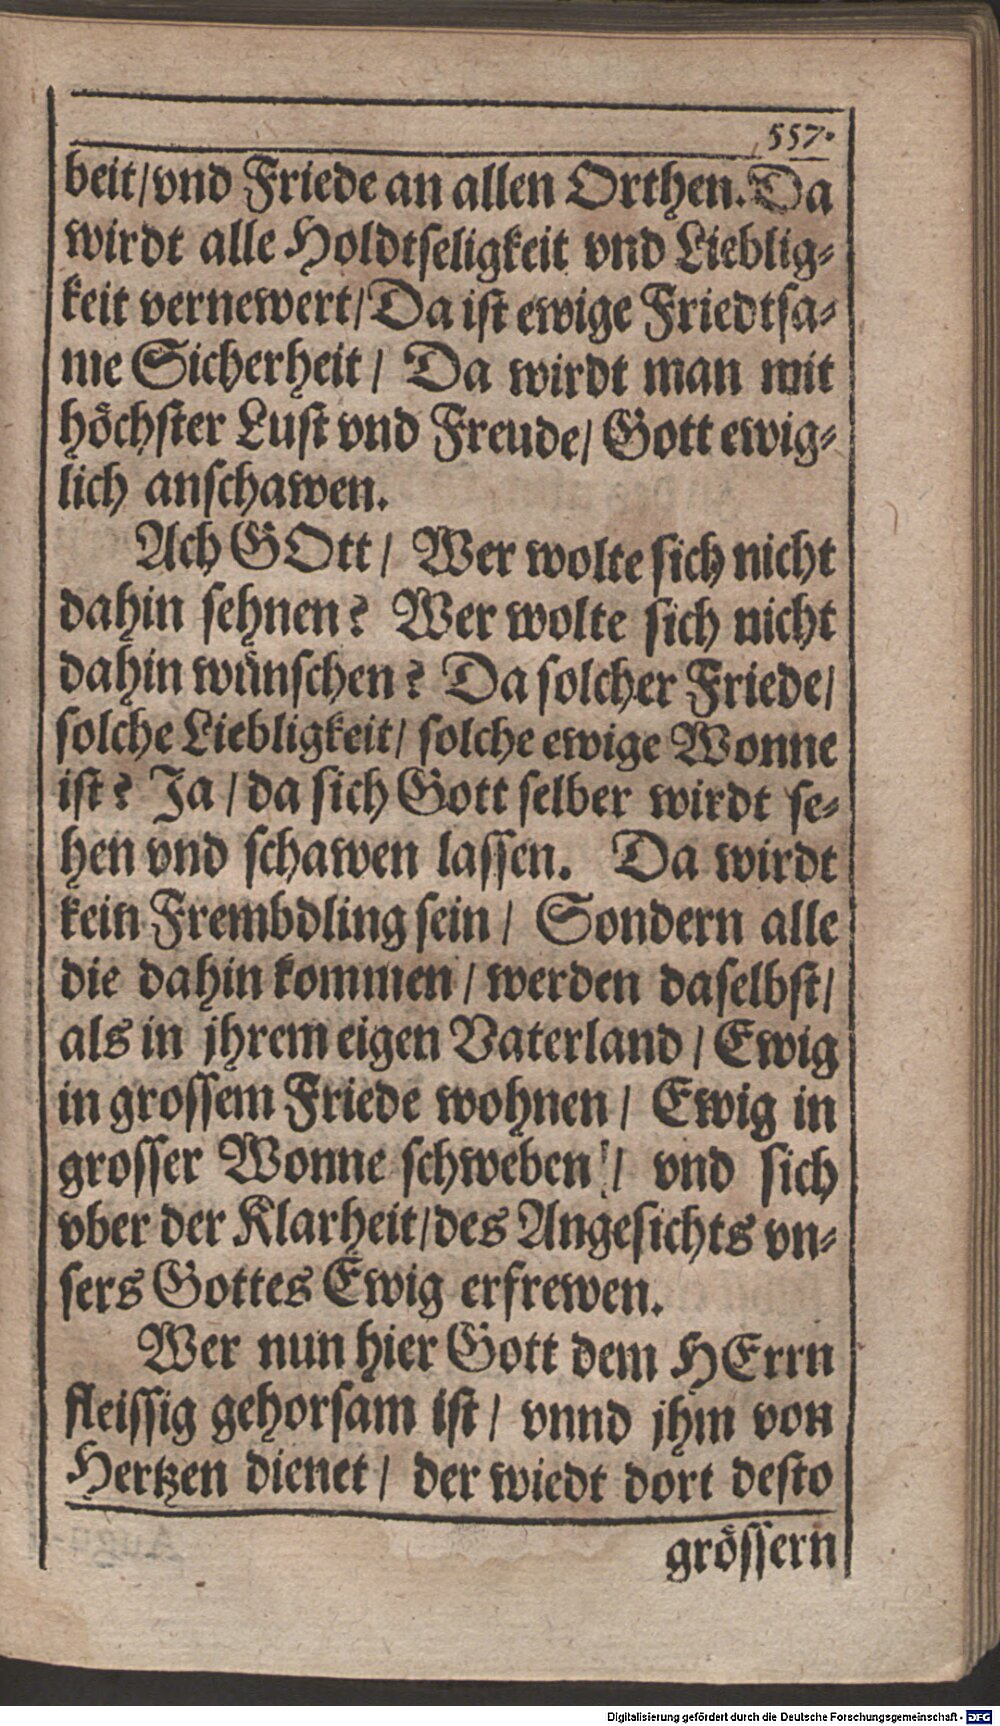 557.
beit/vnd Friede an allen Orthen. Da
wirdt alle Holdtseligkeit vnd Lieblig-
keit vernewert/ Da ist ewige Friedtsa-
me Sicherheit/ Da wirdt man mit
höchster Lust vnd Freude/ Gott ewig-
lich anschawen.
Ach GOtt/ Wer wolte sich nicht
dahin sehnen? Wer wolte sich nicht
dahin wünschen? Da solcher Friede/
solche Liebligkeit/ solche ewige Wonne
ist? Ja/ da sich Gott selber wirdt se-
hen vnd schawen lassen. Da wirdt
kein Frembdling sein/ Sondern alle
die dahin kommen/ werden daselbst/
als in jhrem eigen Vaterland/ Ewig
in grossem Friede wohnen/ Ewig in
grosser Wonne schweben/ vnd sich
vber der Klarheit/des Angesichts vn-
sers Gottes Ewig erfrewen.
Wer nun hier Gott dem HErrn
fleissig gehorsam ist/ vnnd jhm von
Hertzen dienet/ der wiedt dort desto
grössern
Digitalisierung gefördert durch die Deutsche Forschungsgemeinschaft - DFG